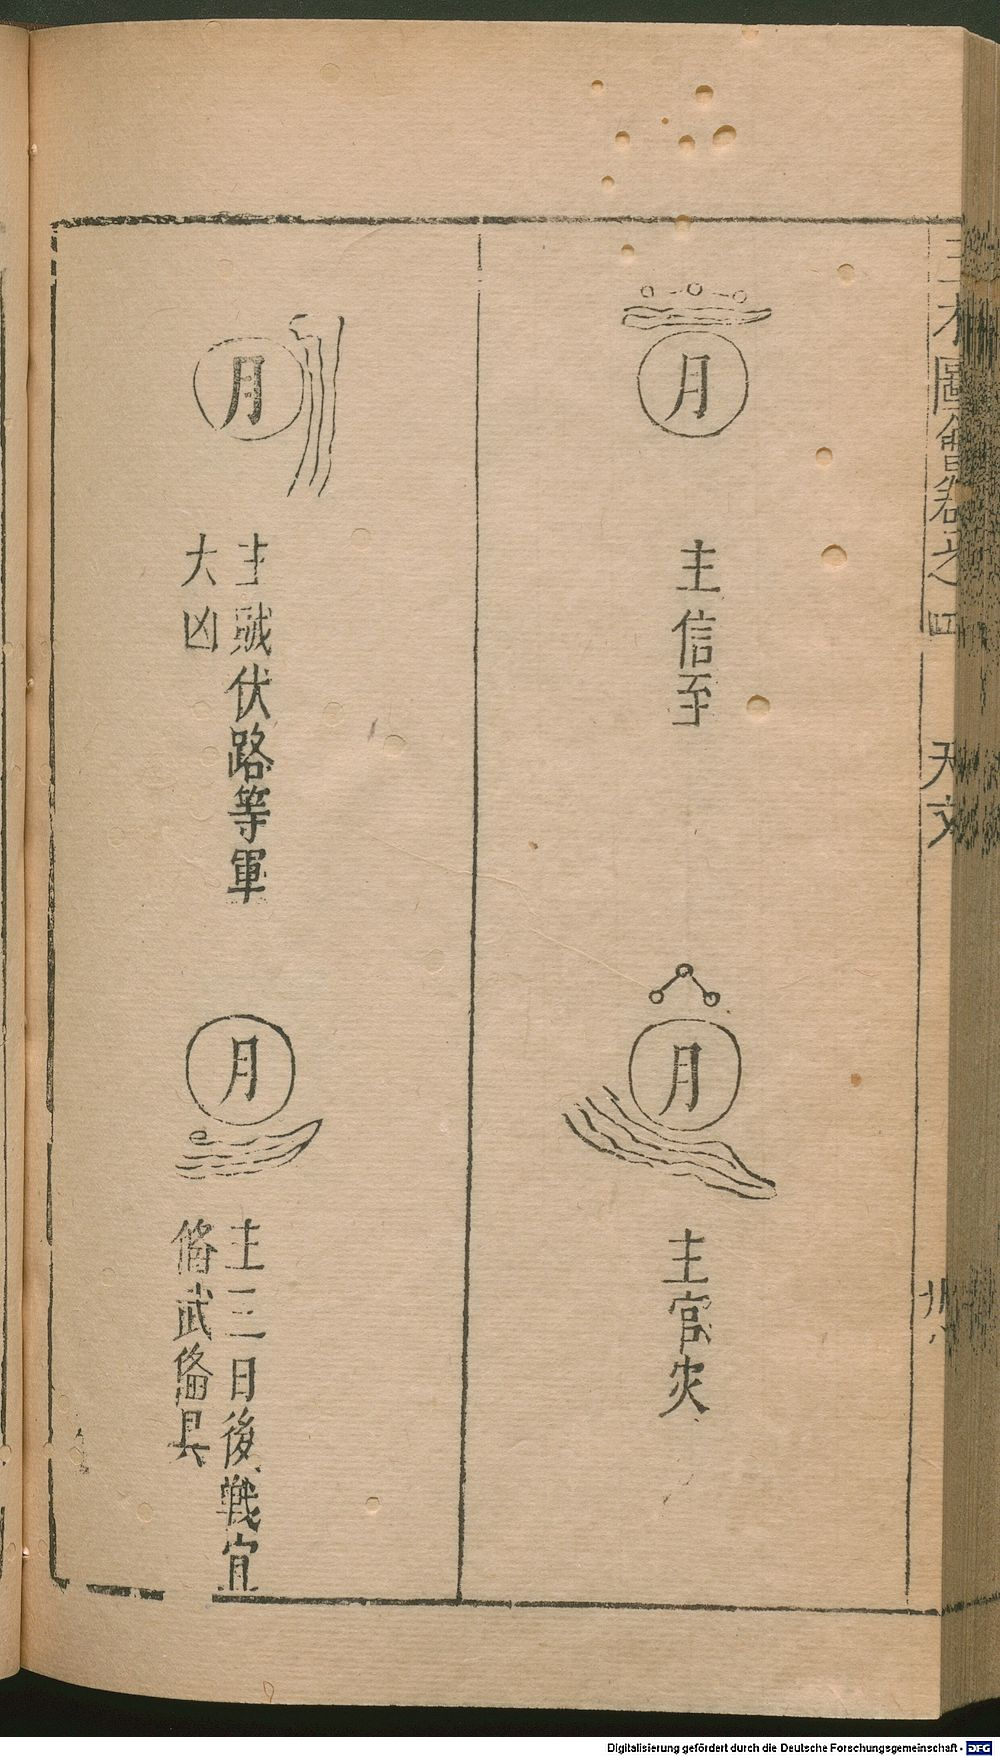 三才圖會卷之四
天文
月
主信至
月
主官灾
月
主賊伏路等軍
大凶
月
主三日後戦宜
脩武俻具
Digitalisierung gefördert durch die Deutsche Forschungsgemeinschaft - DFG